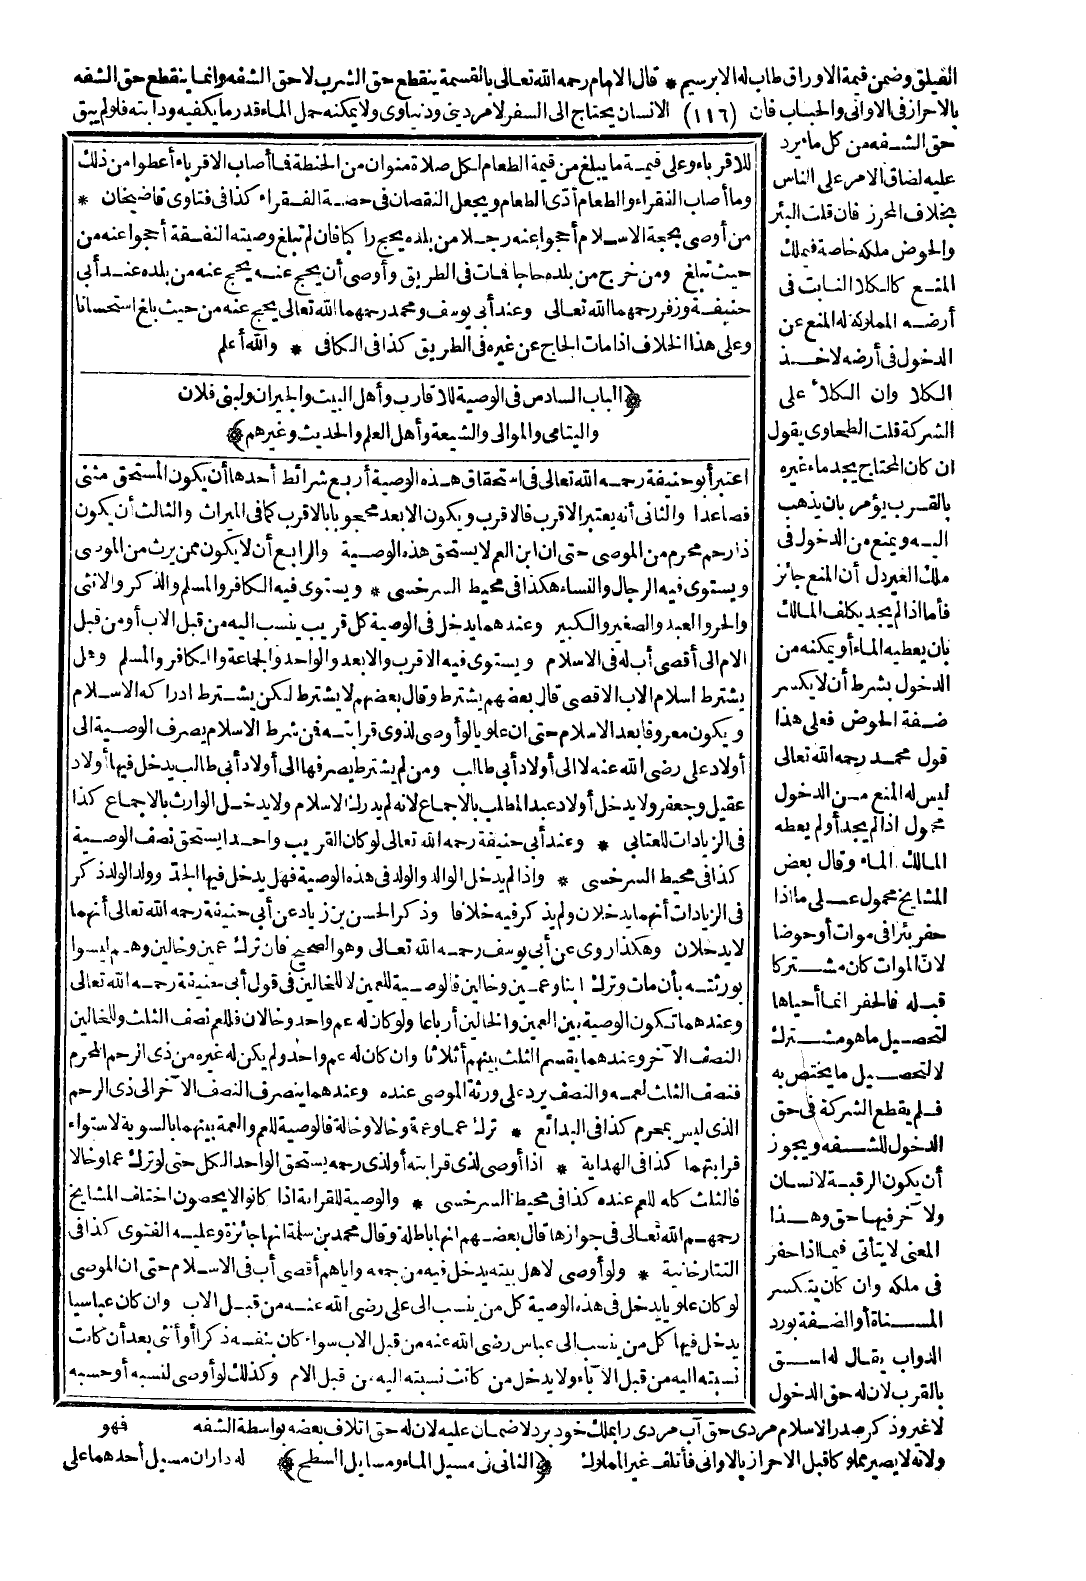 الفيلق وضمن قيمة الاوراق طاب له الابريسم * قال الامام رحمه الله تعالى بالقسمة ينقطع حق الشرب لا حق الشفه وانما ينقطع حق الشفه
بالاحراز فى الاوانى والحباب فان (١١٦) الانسان يحتاج الى السفر لامر دينى ودنياوى ولا يمكنه حمل الماء قدر ما يكفيه ودابته فلو لم يبق
حق الشفه من كل ماء يرد
عليه لضاق الامر على الناس
بخلاف المحرز فان قلت البئر
والحوض ملكه خاصة فيملك
المنع كالكلا النابت فى
أرضه المملوكة له المنع عن
الدخول فى أرضه لاخذ
الكلا وان الكلاء على
الشركة قلت الطحاوى يقول
ان كان المحتاج يجد ماء غيره
بالقرب يؤمر بان يذهب
اليه ويمنع من الدخول فى
ملك الغير دل أن المنع جائز
فأما اذا لم يجد يكلف المالك
بان يعطيه الماء أو يمكنه من
الدخول بشرط أن لا يكسر
ضفة الحوض فعلى هذا
قول محمد رحمه الله تعالى
ليس له المنع من الدخول
محمول اذا لم يجد أو لم يعطه
المالك الماء وقال بعض
المشايخ محمول على ما اذا
حفر بئرا فى موات أو حوضا
لان الموات كان مشتركا
قبله فالحفر انما أحياها
لتحصيل ما هو مشترك
لا لتحصيل ما يختص به
فلم يقطع الشركة فى حق
الدخول للشفه ويجوز
أن يكون الرقبة لانسان
ولآخر فيها حق وهذا
المعنى لا يتأتى فيما اذا حفر
فى ملكه وان كان يتكسر
المسناة أو الضفة بورد
الدواب يقال له اسق
بالقرب لان له حق الدخول
للاقرباء وعلى قيمة ما يبلغ من قيمة الطعام لكل صلاة منوان من الحنطة فما أصاب الاقرباء أعطوا من ذلك
وما أصاب الفقراء والطعام أدى الطعام ويجعل النقصان فى حصة الفقراء كذا فى فتاوى قاضيخان *
من أوصى بحجة الاسلام أحجوا عنه رجلا من بلده يحج راكبا فان لم تبلغ وصيته النفقة أحجوا عنه من
حيث تبلغ ومن خرج من بلده حاجا فمات فى الطريق وأوصى أن يحج عنه يحج عنه من بلده عند أبى
حنيفة وزفر رحمهما الله تعالى وعند أبى يوسف ومحمد رحمهما الله تعالى يحج عنه من حيث بلغ استحسانا
وعلى هذا الخلاف اذا مات الحاج عن غيره فى الطريق كذا فى الكافى * والله أعلم
﴿الباب السادس فى الوصية للاقارب وأهل البيت والجيران ولبنى فلان
واليتامى والموالى والشيعة وأهل العلم والحديث وغيرهم﴾
اعتبر أبو حنيفة رحمه الله تعالى فى استحقاق هذه الوصية أربع شرائط أحدها أن يكون المستحق مثنى
فصاعدا والثانى أنه يعتبر الاقرب فالاقرب ويكون الابعد محجوبا بالاقرب كما فى الميراث والثالث أن يكون
ذا رحم محرم من الموصى حتى ان ابن العم لا يستحق هذه الوصية والرابع أن لا يكون ممن يرث من الموصى
ويستوى فيه الرجال والنساء هكذا فى محيط السرخسى * ويستوى فيه الكافر والمسلم والذكر والانثى
والحر والعبد والصغير والكبير وعندهما يدخل فى الوصية كل قريب ينسب اليه من قبل الاب أو من قبل
الام الى أقصى أب له فى الاسلام ويستوى فيه الاقرب والابعد والواحد والجماعة والكافر والمسلم وهل
يشترط اسلام الاب الاقصى قال بعضهم يشترط وقال بعضهم لا يشترط لكن يشترط ادراكه الاسلام
ويكون معروفا بعد الاسلام حتى ان علويا لو أوصى لذوى قرابته فمن شرط الاسلام يصرف الوصية الى
أولاد على رضى الله عنه لا الى أولاد أبى طالب ومن لم يشترط يصرفها الى أولاد أبى طالب يدخل فيها أولاد
عقيل وجعفر ولا يدخل أولاد عبد المطلب بالاجماع لانه لم يدرك الاسلام ولا يدخل الوارث بالاجماع كذا
فى الزيادات للعتابى * وعند أبى حنيفة رحمه الله تعالى لو كان القريب واحدا يستحق نصف الوصية
كذا فى محيط السرخسى * واذا لم يدخل الوالد والولد فى هذه الوصية فهل يدخل فيها الجد وولد الولد ذكر
فى الزيادات أنهما يدخلان ولم يذكر فيه خلافا وذكر الحسن بن زياد عن أبى حنيفة رحمه الله تعالى أنهما
لا يدخلان وهكذا روى عن أبى يوسف رحمه الله تعالى وهو الصحيح فان ترك عمين وخالين وهم ليسوا
بورثته بأن مات وترك ابنا وعمين وخالين فالوصية للعمين لا للخالين فى قول أبى حنيفة رحمه الله تعالى
وعندهما تكون الوصية بين العمين والخالين أرباعا ولو كان له عم واحد وخالان فللعم نصف الثلث وللخالين
النصف الآخر وعندهما يقسم الثلث بينهم أثلاثا وان كان له عم واحد ولم يكن له غيره من ذى الرحم المحرم
فنصف الثلث لعمه والنصف يرد على ورثة الموصى عنده وعندهما ينصرف النصف الآخر الى ذى الرحم
الذى ليس بمحرم كذا فى البدائع * ترك عما وعمة وخالا وخالة فالوصية للعم والعمة بينهما بالسوية لاستواء
قرابتهما كذا فى الهداية * اذا أوصى لذى قرابته أو لذى رحمه يستحق الواحد الكل حتى لو ترك عما وخالا
فالثلث كله للعم عنده كذا فى محيط السرخسى * والوصية للقرابة اذا كانوا لا يحصون اختلف المشايخ
رحمهم الله تعالى فى جوازها قال بعضهم انها باطلة وقال محمد بن سلمة انها جائزة وعليه الفتوى كذا فى
التتارخانية * ولو أوصى لاهل بيته يدخل فيه من جمعه واياهم أقصى أب فى الاسلام حتى ان الموصى
لو كان علويا يدخل فى هذه الوصية كل من ينسب الى على رضى الله عنه من قبل الاب وان كان عباسيا
يدخل فيها كل من ينسب الى عباس رضى الله عنه من قبل الاب سواء كان بنفسه ذكرا أو أنثى بعد أن كانت
نسبته اليه من قبل الآباء ولا يدخل من كانت نسبته اليه من قبل الام وكذلك لو أوصى لنسبه أو حسبه
لا غير وذكر صدر الاسلام مردى حق آب مردى را بملك خود برد لا ضمان عليه لان له حق اتلاف بعضه بواسطة الشفه فهو
ولانه لا يصير مملوكا قبل الاحراز بالاوانى فأتلف غير المملوك ﴿الثانى فى مسيل الماء ومسايل السطح﴾ له داران مسيل أحدهما على